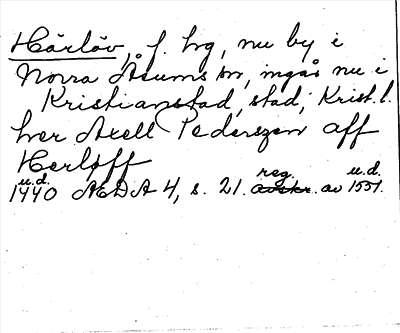 Härlöv, f. hrg, nu by i
Norra Åsums sn, ingår nu i
Kristianstad, stad; Krist. l.
her Axell Pederszen aff
Herløff
u.d. reg. u.d.
1440 AEDA 4, s. 21. avskr. av 1551.